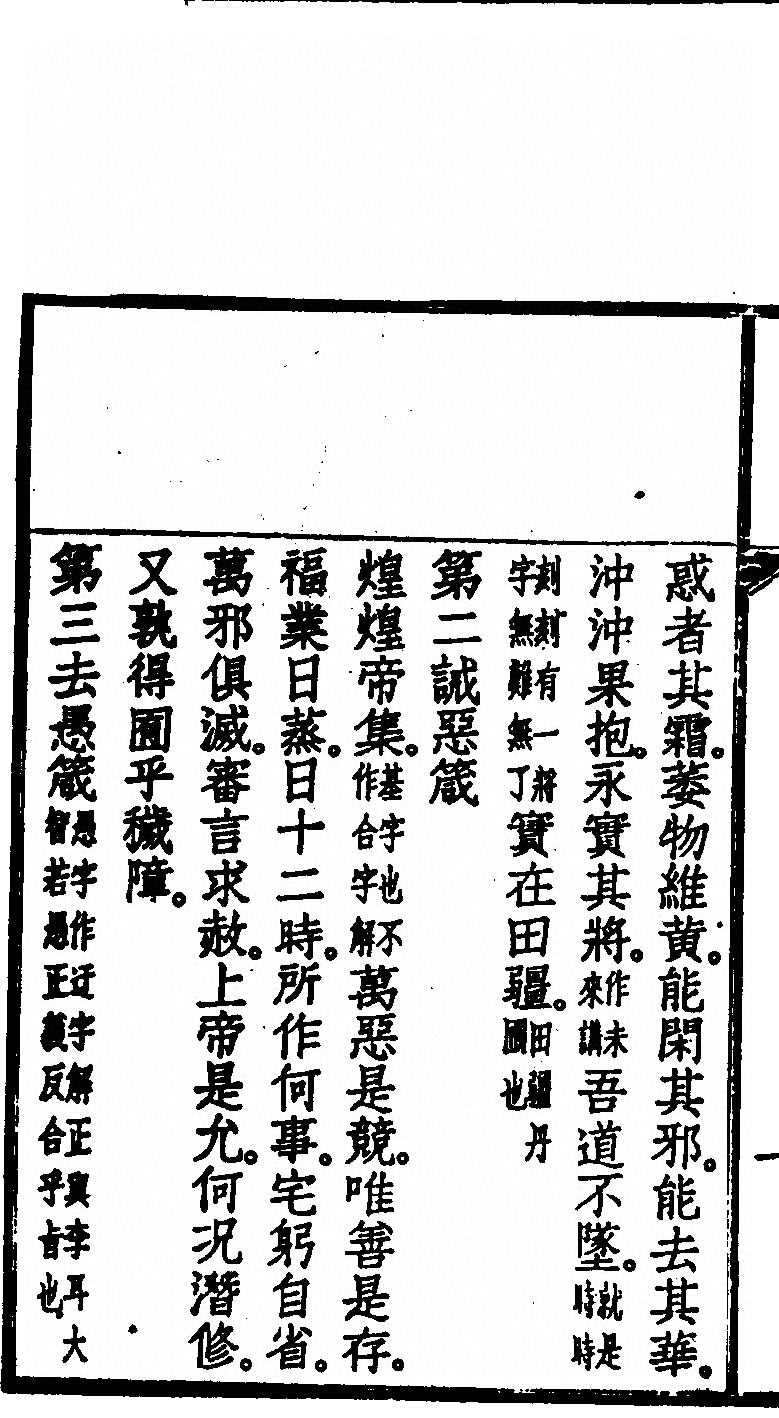 惑者其霜。萎物維黄。能閑其邪。能去其華。
沖沖果抱。永實其將。作未來講吾道不墜。就是時時
刻刻有一將字無難無了實在田疆。田疆丹也
第二誡惡箴
煌煌帝集。基字也不作合字解萬惡是競。唯善是存。
福業日蒸。日十二時。所作何事。宅躬自省。
萬邪俱滅。審言求赦。上帝是允。何況潛修。
又孰得囿乎穢障。
第三去愚箴愚字作迂字解正與李耳大智若愚正義反合乎旨也